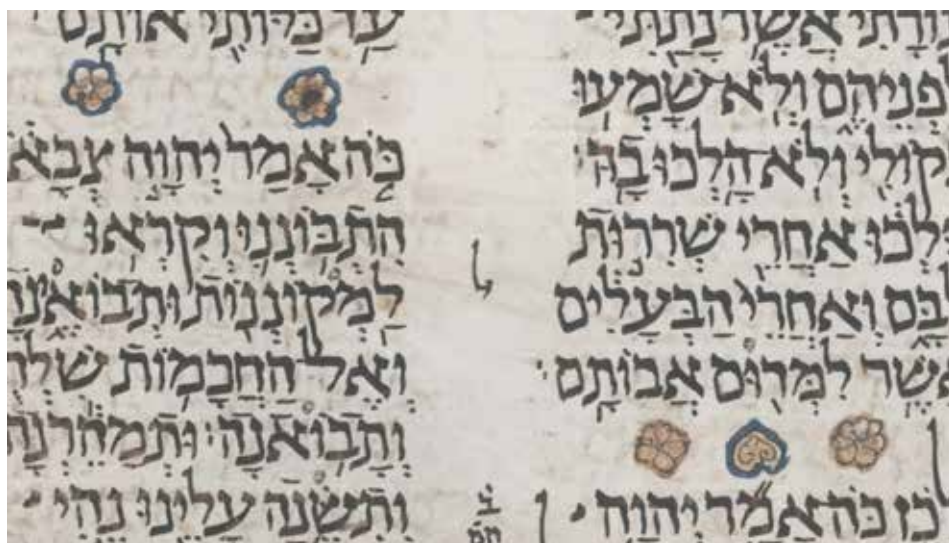 תוֹרָתִי אֲשֶׁר נָתַתִּי
לִפְנֵיהֶם וְלֹא שָׁמְעוּ
בְקוֹלִי וְלֹא הָלְכוּ בָהּ׃
וַיֵּלְכוּ אַחֲרֵי שְׁרִרוּת
לִבָּם וְאַחֲרֵי הַבְּעָלִים
אֲשֶׁר לִמְּדוּם אֲבוֹתָם׃
לָכֵן כֹּה אָמַר יְהוָה
ל
ב
עַד כַּלּוֹתִי אוֹתָם
כֹּה אָמַר יְהוָה צְבָאוֹ
הִתְבּוֹנְנוּ וְקִרְאוּ
לַמְקוֹנְנוֹת וּתְבוֹאֶינָה
וְאֶל הַחֲכָמוֹת שִׁלְחוּ
וְתָבוֹאנָה׃ וּתְמַהֵרְנָה
וְתִשֶּׂנָה עָלֵינוּ נֶהִי